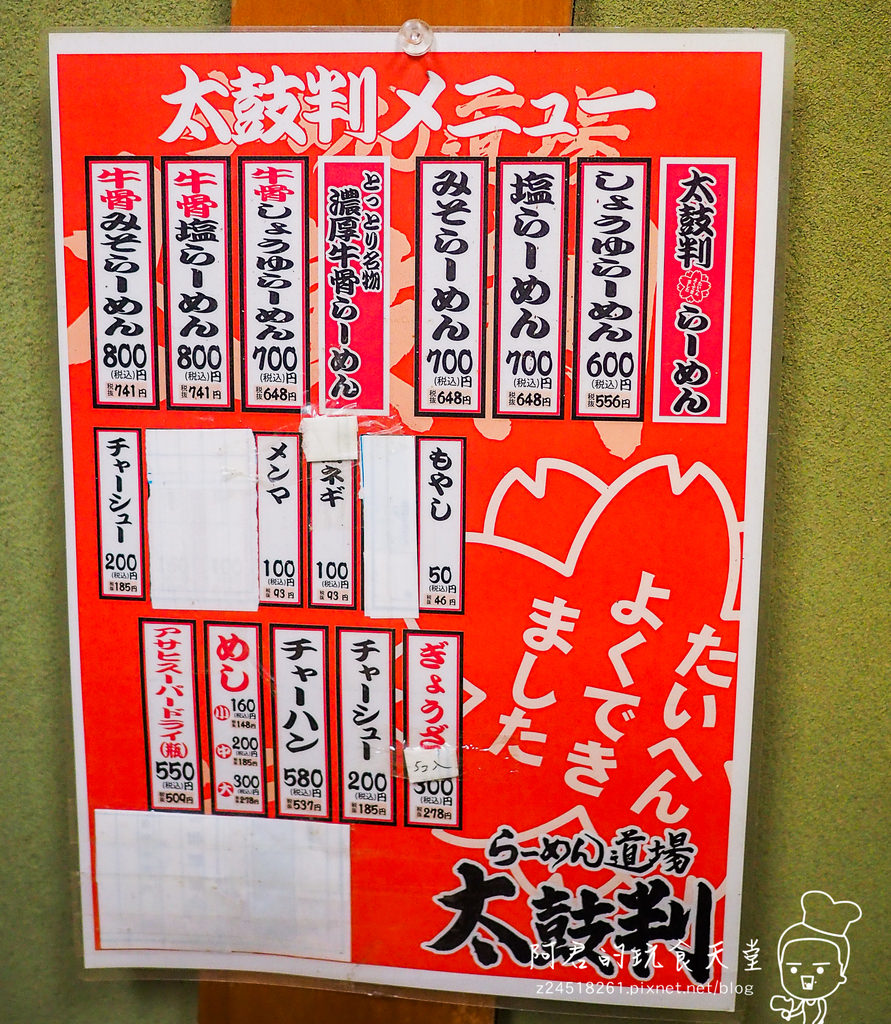 太鼓判メニュー
太鼓判らーめん
しょうゆらーめん
600円
(税込)
税抜556円
塩らーめん
700円
(税込)
税抜648円
みそらーめん
700円
(税込)
税抜648円
とっとり名物
濃厚牛骨らーめん
牛骨しょうゆらーめん
700円
(税込)
税抜648円
牛骨塩らーめん
800円
(税込)
税抜741円
牛骨みそらーめん
800円
(税込)
税抜741円
もやし
50円
(税込)
税抜46円
ネギ
100円
(税込)
税抜93円
メンマ
100円
(税込)
税抜93円
チャーシュー
200円
(税込)
税抜185円
ぎょうざ
5コ入
300円
(税込)
税抜278円
チャーシュー
200円
(税込)
税抜185円
チャーハン
580円
(税込)
税抜537円
めし
小 160円
(税込)
税抜148円
中 200円
(税込)
税抜185円
大 300円
(税込)
税抜278円
アサヒスーパードライ(瓶)
550円
(税込)
税抜509円
たいへん
よくでき
ました
らーめん道場
太鼓判
阿君的玩食天堂
z24518261.pixnet.net/blog